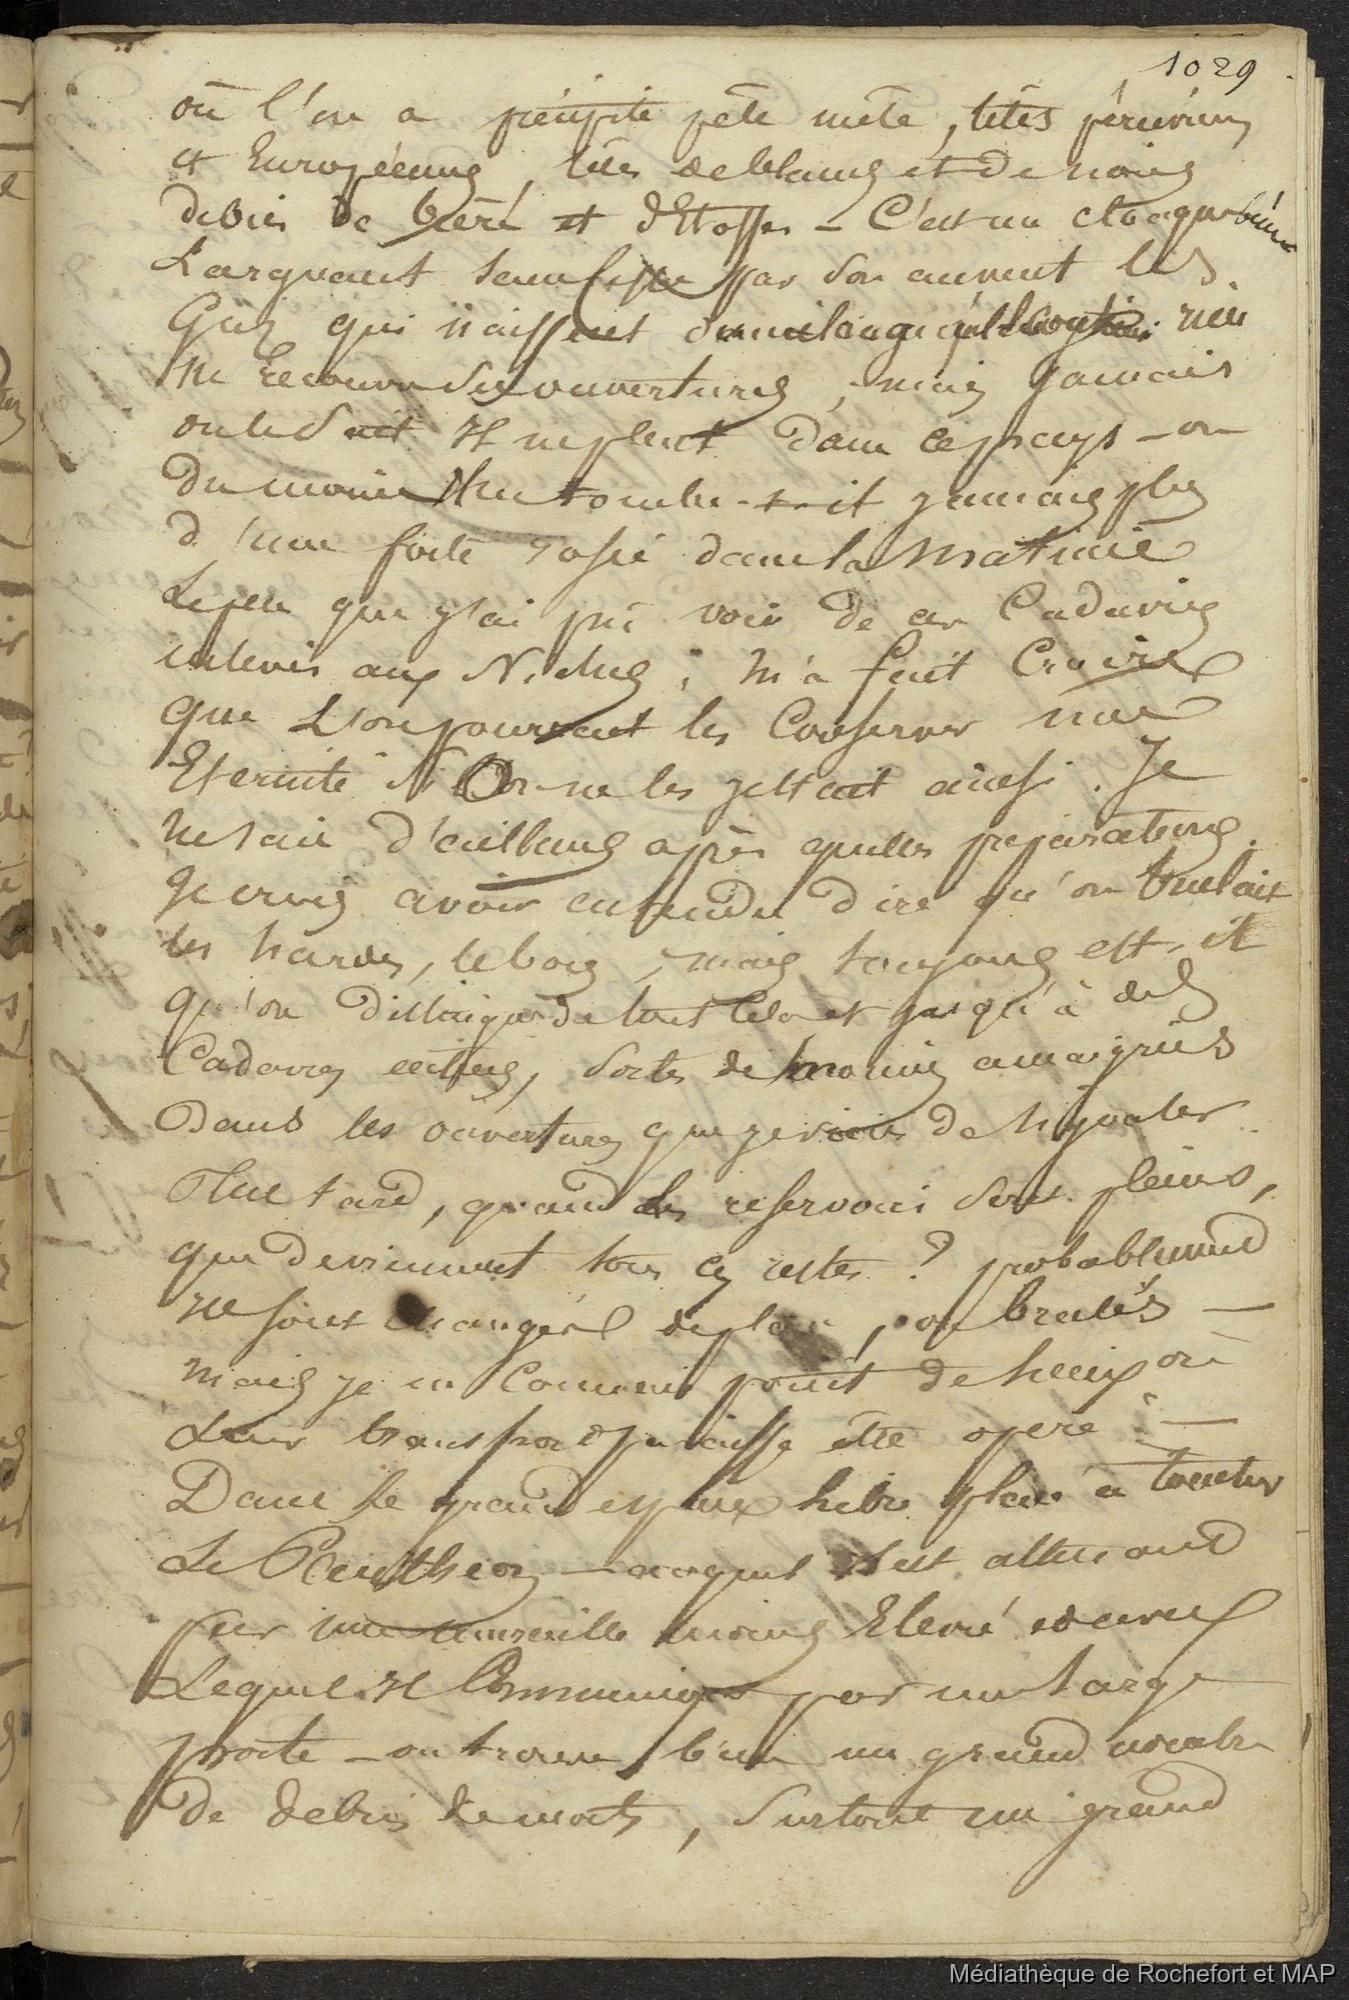 1029
où l'on a précipité pêle mêle, têtes péruviens
et Européennes, têtes de blancs et de noirs
debris de bière et d'Etoffes - C'est un cloaque
Larguant sans cesse par son auvent les
Gaz qui naissent du mélange qu'il contient rien
ne recouvre ses ouvertures ; mais jamais
on le sait il ne pleut dans ce pays - ou
du moins il ne tombe-t-il jamais plus
d'une forte rosée dans la matinée
Le peu que j'ai pû voir de ces Cadavres
enlevés aux Niches ; m'a fait Croire
que L'on pourrait les Conserver une
Eternité si On ne les jettait ainsi. Je
ne sais d'ailleurs après quelles préparations.
Je crois avoir entendu dire qu'on brulait
les hardes, le bois ; mais toujours est-il
qu'on distingue de tout Cela et jusqu'à des
Cadavres entiers, sortes de momies amaigries
Dans les ouvertures que je viens de signaler
Plus tard, quand les reservoirs sont pleins,
que deviennent tous ces restes ? probablement
ils sont changés de place, ou brulés —
mais je ne Connais point de lieux où
Leur transport puisse être opéré —
Dans le grand espace libre placé à toucher
Le Panthéon — auquel il est attenant
par une muraille moins Elevée et avec
Lequel il Communique par une large
porte - on trouve bien un grand nombre
de debris de morts, surtout un grand
Médiathèque de Rochefort et MAP